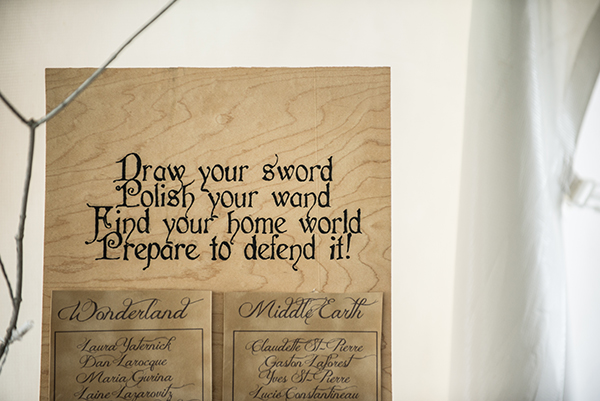 Draw your sword
Polish your wand
Find your home world
Prepare to defend it!
Wonderland
Laura Yaternick
Dan Larocque
Maria Gurina
Laine Lazarovitz
Middle Earth
Claudette St-Pierre
Gaston Laforest
Yves St-Pierre
Lucie Constantineau